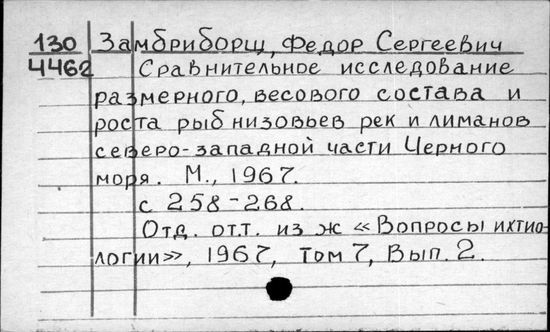 130 Замбриборщ, Федор Сергеевич
4462 Сравнительное исследование
размерного, весового состава и
роста рыб низовьев рек и лиманов
северо-западной части Черного
моря. М., 1967.
с 258-268.
Отд. отт. из ж «Вопросы ихтио-
логии», 1967, том 7, Вып. 2.